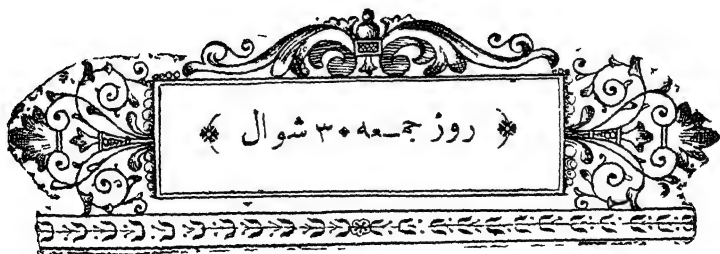 ﴿ روز جمعه ۳۰ شوال ﴾